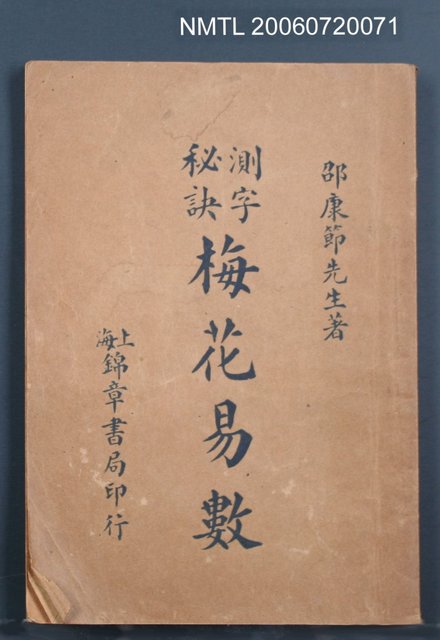 NMTL 20060720071
邵康節先生著
測字
秘訣
梅花易數
上海
錦章書局印行